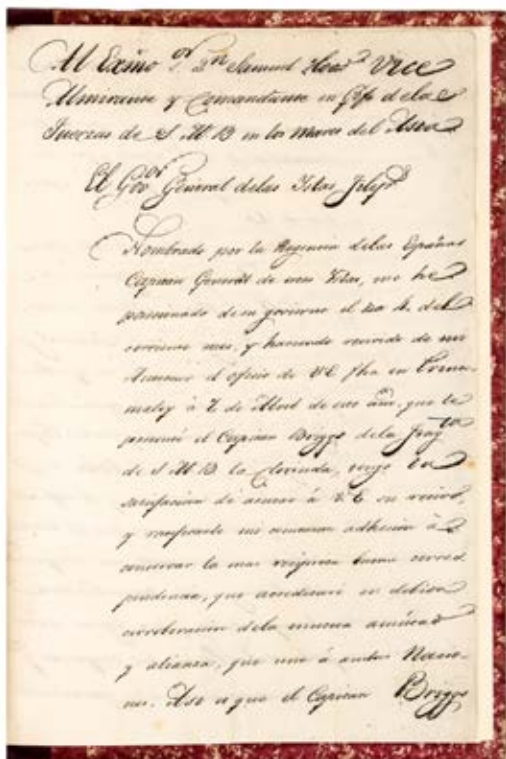 Al Exmo Sor Dn Samuel Hood Vice
Almirante y Comandante en Gefe de las
Fuerzas de S. M. B. en los Mares del Asia
El Gor General de las Islas Felips
Nombrado por la Regencia de las Españas
Capitan General de estas Islas, me he
posesionado de su govierno el dia 4. del
corriente mes, y haviendo recivido de mi
Antecesor el oficio de V.E. fha en
à 7 de Abril de este año, que le
presentó el Capitan Briggs de la Fragta
de S. M. B. la Clorinda, tengo la
satisfacion de acusar à V.E. su recivo,
y ratificarle mi constante adhesion à
conservar la mas buena corres
pondencia, que acreditaré en debida
corroboracion de la estrecha amistad
y alianza, que une à ambas Nacio-
nes. Asi es que el Capitan Briggs